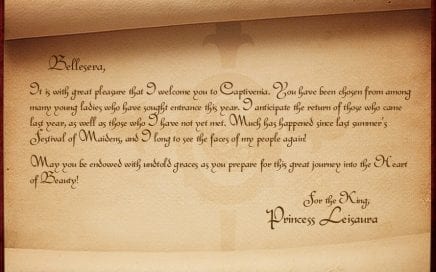 Bellesera,
It is with great pleasure that I welcome you to Captivenia. You have been chosen from among
many young ladies who have sought entrance this year. I anticipate the return of those who came
last year, as well as those who I have not yet met. Much has happened since last summer's
Festival of Maidens, and I long to see the faces of my people again!
May you be endowed with untold graces as you prepare for this great journey into the Heart
of Beauty!
For the King,
Princess Leisaura